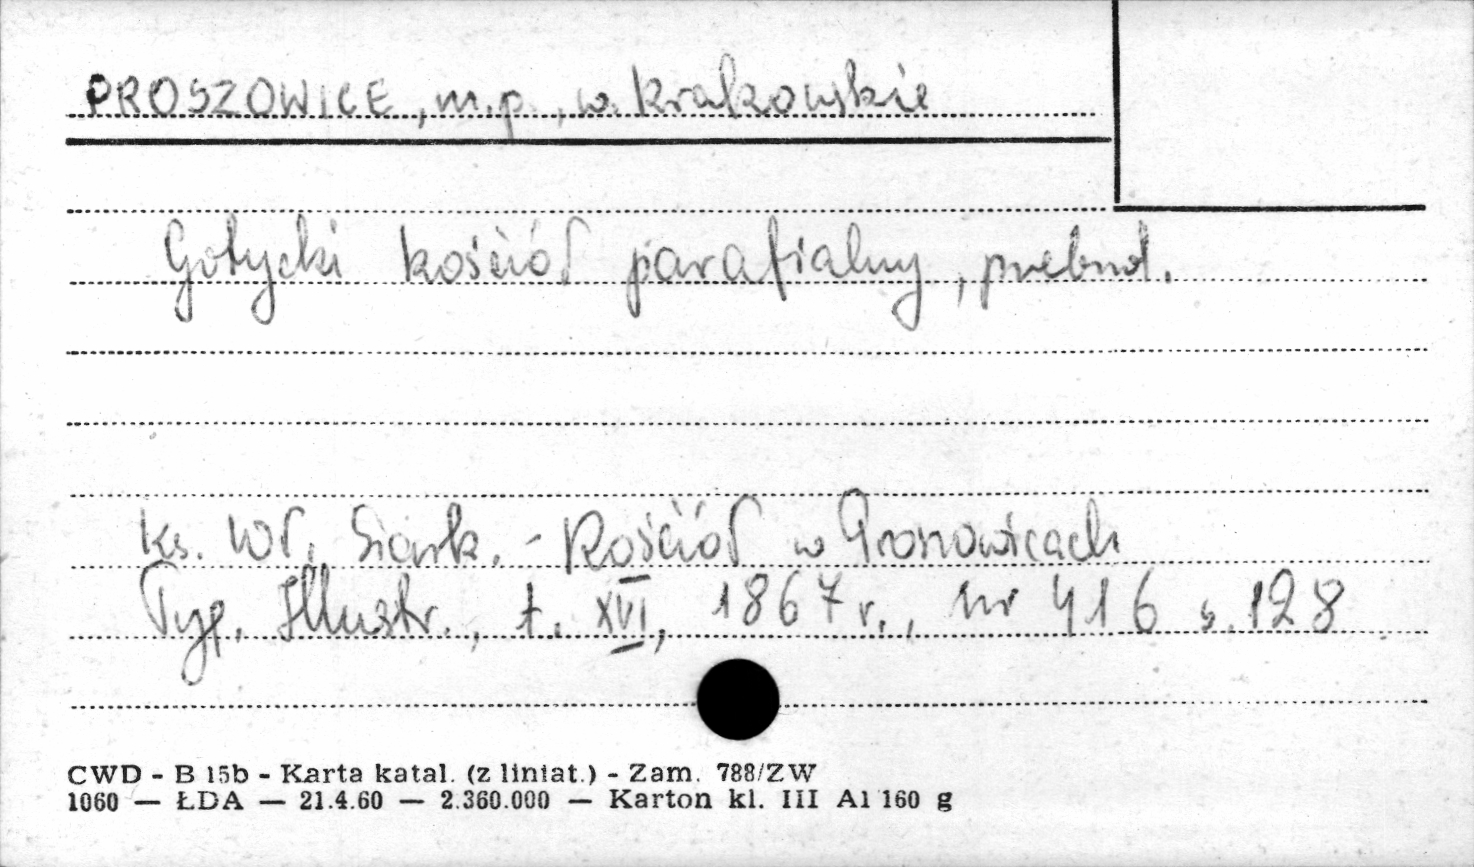 PROSZOWICE, m.p., w. krakowskie
Gotycki kościół parafialny, przebud.
ks. Wł. Siark. - Kościół w Proszowicach
Tyg. Illustr., t. XVI, 1867 r., nr 416 s. 128
CWD - B 15b - Karta katal. (z liniat.) - Zam. 788/ZW
1060 — ŁDA — 21.4.60 — 2.360.000 — Karton kl. III A1 160 g